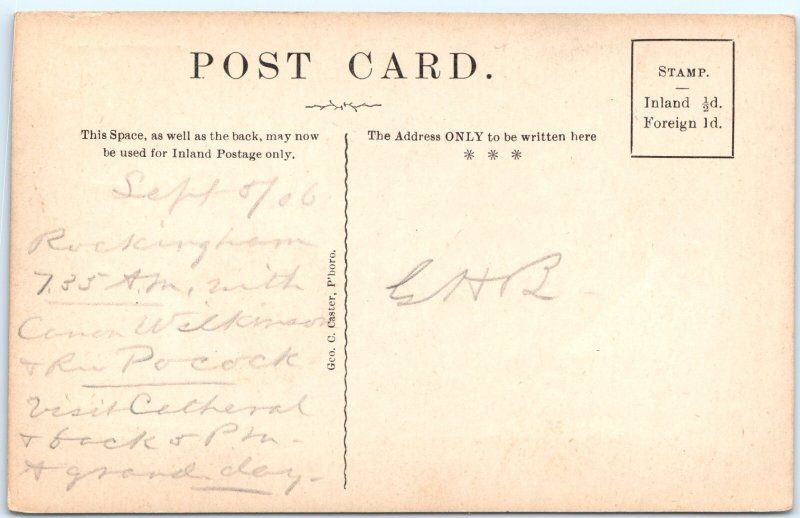 POST CARD.
STAMP.
Inland ½d.
Foreign 1d.
This Space, as well as the back, may now
be used for Inland Postage only.
The Address ONLY to be written here
* * *
Sept 5/06
Rockingham
7.35 A.M, with
Canon Wilkinson
& Rev Pocock
Visit Catheral
& back 5 P.M -
A grand day -
Geo. C. Caster, P'boro.
G H B -